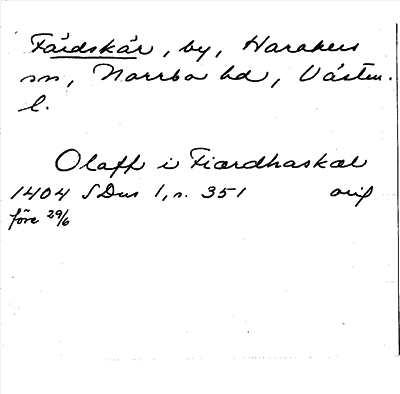 Fårdskär, by, Harakers
sn, Norrbo hd, Västm.
l.
Olaff i Fiardhaskæl
1404 SDns 1, s. 351 orig
före 29/6